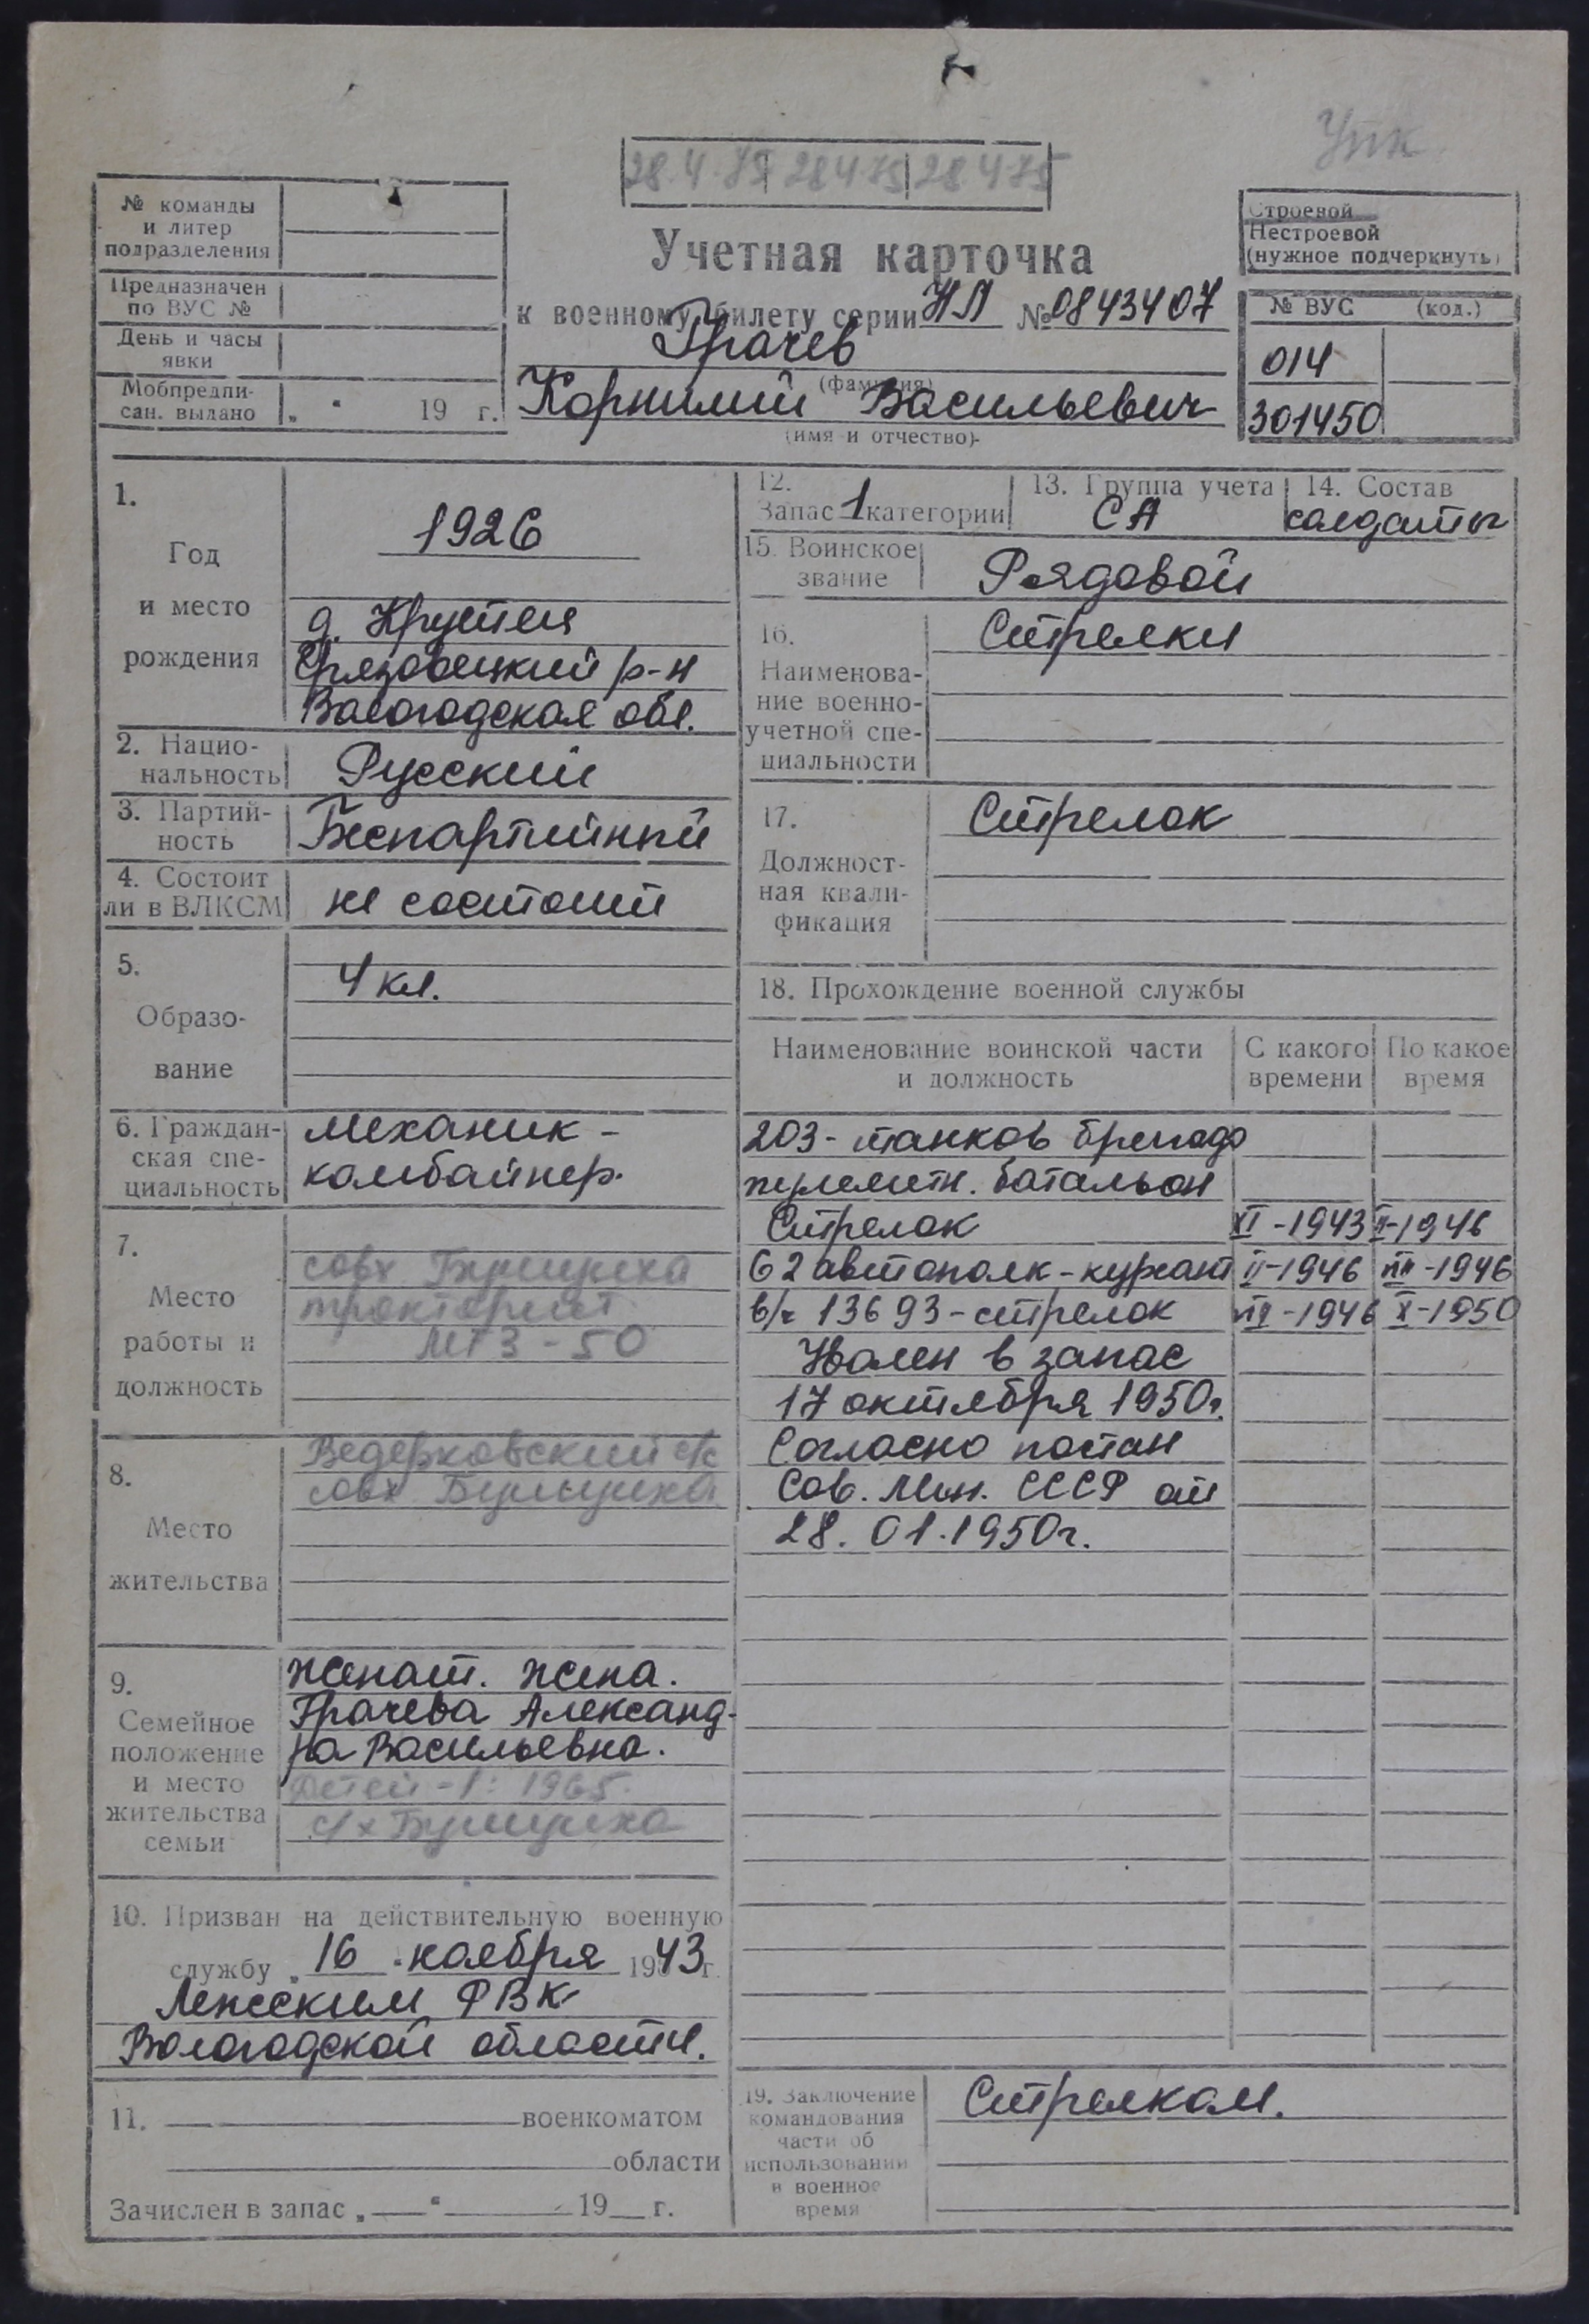 Упк
28.4.75 28.4.75 28.4.75
№ команды
и литер
подразделения
Предназначен
по ВУС №
День и часы
явки
Мобпредпи-
сан. выдано „ “ 19 г.
Учетная карточка
к военному билету серии НЛ № 0843407
Грачев
(фамилия)
Корнилий Васильевич
(имя и отчество)
Строевой
Нестроевой
(нужное подчеркнуть)
№ ВУС (код.)
014
301450
1.
Год
и место
рождения
1926
д. Крутея
Грязовецкий р-н
Вологодская обл.
2. Нацио-
нальность Русский
3. Партий-
ность Беспартийный
4. Состоит
ли в ВЛКСМ не состоит
5.
Образо-
вание
4 кл.
6. Граждан-
ская спе-
циальность
механик -
комбайнер.
7.
Место
работы и
должность
совх Бушуиха
тракторист
МТЗ - 50
8.
Место
жительства
Ведерковский с/с
совх Бушуиха
9.
Семейное
положение
и место
жительства
семьи
женат. жена.
Грачева Александ-
ра Васильевна.
Детей - 1: 1965.
с/х Бушуиха
10. Призван на действительную военную
службу „ 16 “ ноября 1943 г.
Лежским РВК
Вологодской области.
11. военкоматом
области
Зачислен в запас „ “ 19 г.
12.
Запас 1 категории
13. Группа учета
СА
14. Состав
солдаты
15. Воинское
звание Рядовой
16.
Наименова-
ние военно-
учетной спе-
циальности
Стрелки
17.
Должност-
ная квали-
фикация
Стрелок
18. Прохождение военной службы
Наименование воинской части
и должность
С какого
времени
По какое
время
203 - танков бригада
пулеметн. батальон
Стрелок XI -1943 II-1946
62 автополк - курсант II-1946 VIII -1946
в/ч 13693 - стрелок VIII -1946 X-1950
Уволен в запас
17 октября 1950г.
Согласно постан
Сов. Мин. СССР от
28. 01. 1950г.
19. Заключение
командования
части об
использовании
в военное
время
Стрелком.